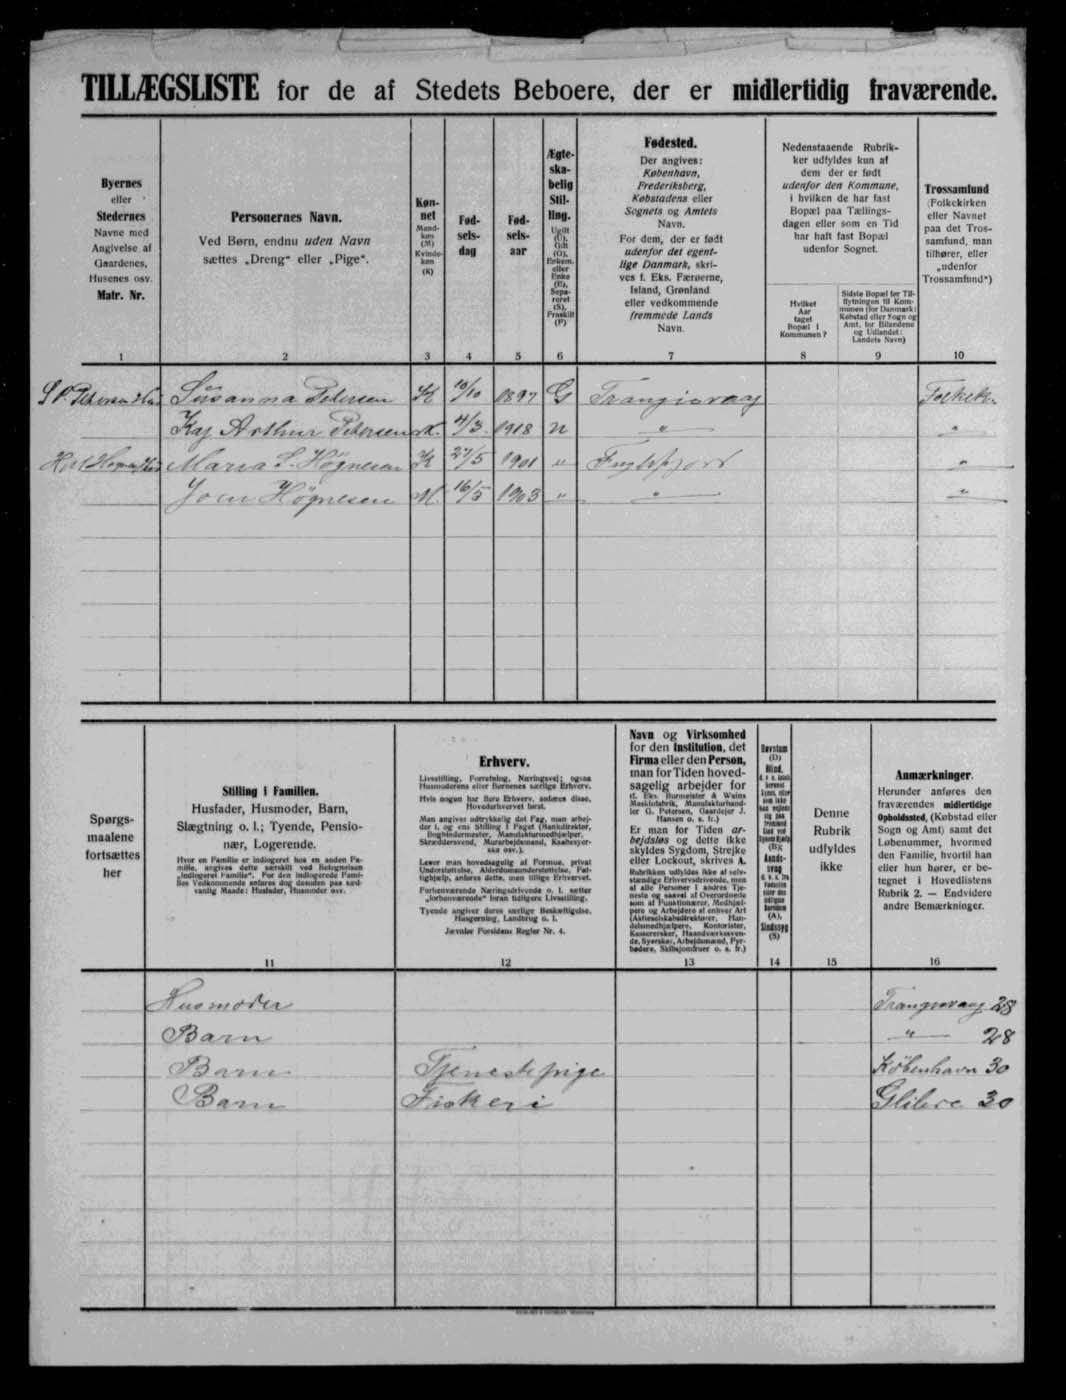 TILLÆGSLISTE for de af Stedets Beboere, der er midlertidig fraværende.
Byernes
eller
Stedernes
Navne med
Angivelse af
Gaardenes,
Husenes osv.
Matr. Nr.
1
Personernes Navn.
Ved Børn, endnu uden Navn
sættes „Dreng“ eller „Pige“.
2
Køn-
net
Mand-
køn
(M)
Kvinde-
køn
(K)
3
Fød-
sels-
dag
4
Fød-
sels-
aar
5
Ægte-
ska-
belig
Stil-
ling.
Ugift
(U),
Gift
(G),
Enkem.
eller
Enke
(E),
Sepa-
reret
(S),
Fraskilt
(F)
6
Fødested.
Der angives:
København,
Frederiksberg,
Købstadens eller
Sognets og Amtets
Navn.
For dem, der er født
udenfor det egent-
lige Danmark, skri-
ves f. Eks. Færøerne,
Island, Grønland
eller vedkommende
fremmede Lands
Navn.
7
Nedenstaaende Rubrik-
ker udfyldes kun af
dem der er født
udenfor den Kommune,
i hvilken de har fast
Bopæl paa Tællings-
dagen eller som en Tid
har haft fast Bopæl
udenfor Sognet.
Hvilket
Aar
taget
Bopæl i
Kommunen?
8
Sidste Bopæl før Til-
flytningen til Kom-
munen (for Danmark:
Købstad eller Sogn og
Amt, for Bilandene
og Udlandet:
Landets Navn)
9
Trossamfund
(Folkekirken
eller Navnet
paa det Tros-
samfund, man
tilhører, eller
„udenfor
Trossamfund“)
10
Susanna Petersen K 10/10 1897 G Trangisvaag Folkek.
Kaj Arthur Petersen M. 4/3 1918 U " "
Maria S. Høgnesen K 27/5 1901 " Fuglefjord "
Høgnesen M. 16/5 1903 " " "
Spørgs-
maalene
fortsættes
her
Stilling i Familien.
Husfader, Husmoder, Barn,
Slægtning o. l.; Tyende, Pensio-
nær, Logerende.
Hvor en Familie er indlogeret hos en anden Fa-
milie, angives dette særskilt ved Betegnelsen
„Indlogeret Familie“. For den indlogerede Fami-
lies Vedkommende anføres dog desuden paa sæd-
vanlig Maade: Husfader, Husmoder osv.
11
Erhverv.
Livsstilling, Forretning, Næringsvej; ogsaa
Husmoderens eller Børnenes særlige Erhverv.
Hvis nogen har flere Erhverv, anføres disse,
Hovederhvervet først.
Man angives udtrykkelig det Fag, man arbej-
der i, og ens Stilling i Faget (Bankdirektør,
Bogbindermester, Manufakturmedhjælper,
Skræddersvend, Murarbejdsmand, Kaabesyer-
ske osv.).
Lever man hovedsagelig af Formue, privat
Understøttelse, Alderdomsunderstøttelse, Fat-
tighjælp, anføres dette, men tillige Erhvervet.
Forhenværende Næringsdrivende o. l. sætter
„forhenværende“ foran tidligere Livsstilling.
Tyende angiver deres særlige Beskæftigelse,
Husgerning, Landbrug o. l.
Jævnfør Forsidens Regler Nr. 4.
12
Navn og Virksomhed
for den Institution, det
Firma eller den Person,
man for Tiden hoved-
sagelig arbejder for
(f. Eks. Burmeister & Wains
Maskinfabrik, Manufakturhand-
ler G. Petersen, Gaardejer J.
Hansen o. s. fr.)
Er man for Tiden ar-
bejdsløs og dette ikke
skyldes Sygdom, Strejke
eller Lockout, skrives A.
Rubrikken udfyldes ikke af selv-
stændige Erhvervsdrivende, men
af alle Personer i andres Tje-
neste og saavel af Overordnede
som af Funktionærer, Medhjæl-
pere og Arbejdere af enhver Art
(Aktieselskabsdirektører, Han-
delsmedhjælpere, Kontorister,
Kassererske, Haandværkssven-
de, Syersker, Arbejdsmænd, Fyr-
bødere, Skibsjomfruer o. s. fr.)
13
Døvstum
(D)
Blind,
(B);
Aands-
svag
(A),
Sindssyg
(S)
14
Denne
Rubrik
udfyldes
ikke
15
Anmærkninger.
Herunder anføres den
fraværendes midlertidige
Opholdssted, (Købstad eller
Sogn og Amt) samt det
Løbenummer, hvormed
den Familie, hvortil han
eller hun hører, er be-
tegnet i Hovedlistens
Rubrik 2. — Endvidere
andre Bemærkninger.
16
Husmoder Trangisvaag 28
Barn " 28
Barn Tjenestepige København 30
Barn Fiskeri 30